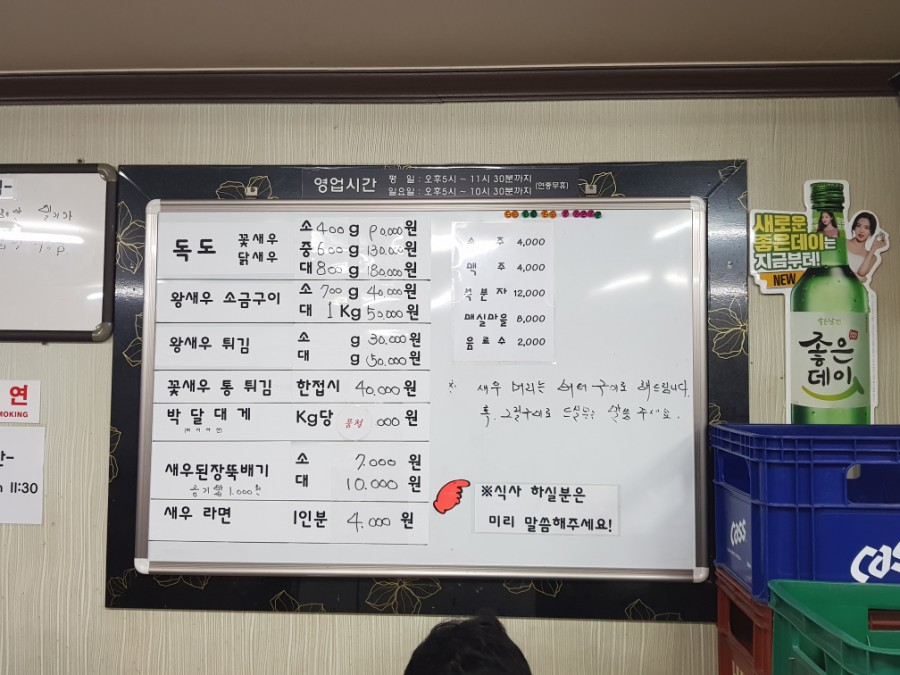 영업시간 평 일 : 오후5시 ~ 11시 30분까지
일요일 : 오후5시 ~ 10시 30분까지 (연중무휴)
독도 꽃새우 닭새우
소 400 g 90,000원
중 600 g 130,000원
대 800 g 180,000원
왕새우 소금구이
소 700 g 40,000원
대 1Kg 50,000원
왕새우 튀김
소 g 30,000원
대 g 50,000원
꽃새우 통 튀김 한접시 40,000원
박달대게 Kg당 품절 000원
새우된장뚝배기
소 7,000 원
대 10,000 원
공기밥 1,000원
새우 라면 1인분 4,000 원
소 주 4,000
맥 주 4,000
복분자 12,000
매실마을 8,000
음료수 2,000
※ 새우 머리는 버터구이로 해드립니다.
혹, 그릴구이로 드실분은 말씀 주세요.
※식사 하실분은
미리 말씀해주세요!
연
MOKING
11:30
새로운
좋은데이는
지금부터!
NEW
좋은
데이
cass
cass